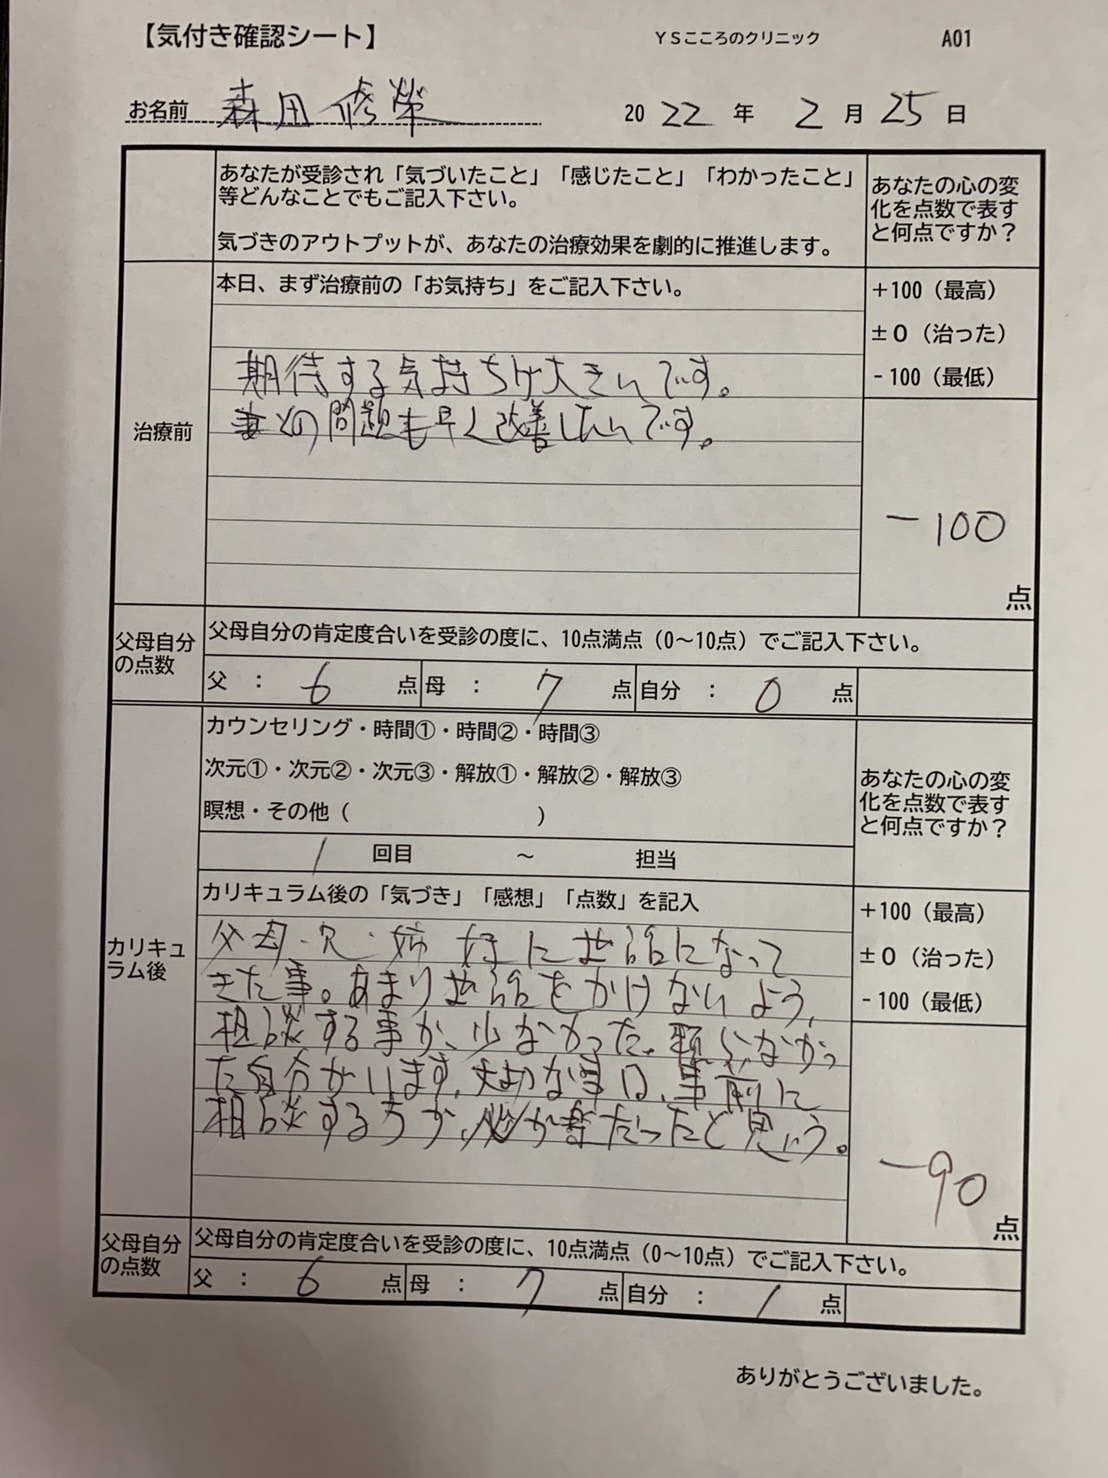 【気付き確認シート】 YSこころのクリニック A01
お名前 森田修榮 2022年 2月25日
あなたが受診され「気づいたこと」「感じたこと」「わかったこと」
等どんなことでもご記入下さい。
気づきのアウトプットが、あなたの治療効果を劇的に推進します。
あなたの心の変
化を点数で表す
と何点ですか？
治療前
本日、まず治療前の「お気持ち」をご記入下さい。
期待する気持ちは大きいです。
妻との問題も早く改善したいです。
+100（最高）
±0（治った）
-100（最低）
-100
点
父母自分
の点数
父母自分の肯定度合いを受診の度に、10点満点（0～10点）でご記入下さい。
父 ： 6 点 母 ： 7 点 自分 ： 0 点
カリキュ
ラム後
カウンセリング・時間①・時間②・時間③
次元①・次元②・次元③・解放①・解放②・解放③
瞑想・その他（ ）
1 回目 ～ 担当
カリキュラム後の「気づき」「感想」「点数」を記入
父母・兄・姉 妹に世話になって
きた事。あまり世話をかけないよう、
相談する事が、少なかった。頼らなかっ
た自分がいます。大切な事は、事前に
相談する方が、心が楽だったと思う。
あなたの心の変
化を点数で表す
と何点ですか？
+100（最高）
±0（治った）
-100（最低）
-90
点
父母自分
の点数
父母自分の肯定度合いを受診の度に、10点満点（0～10点）でご記入下さい。
父 ： 6 点 母 ： 7 点 自分 ： 1 点
ありがとうございました。